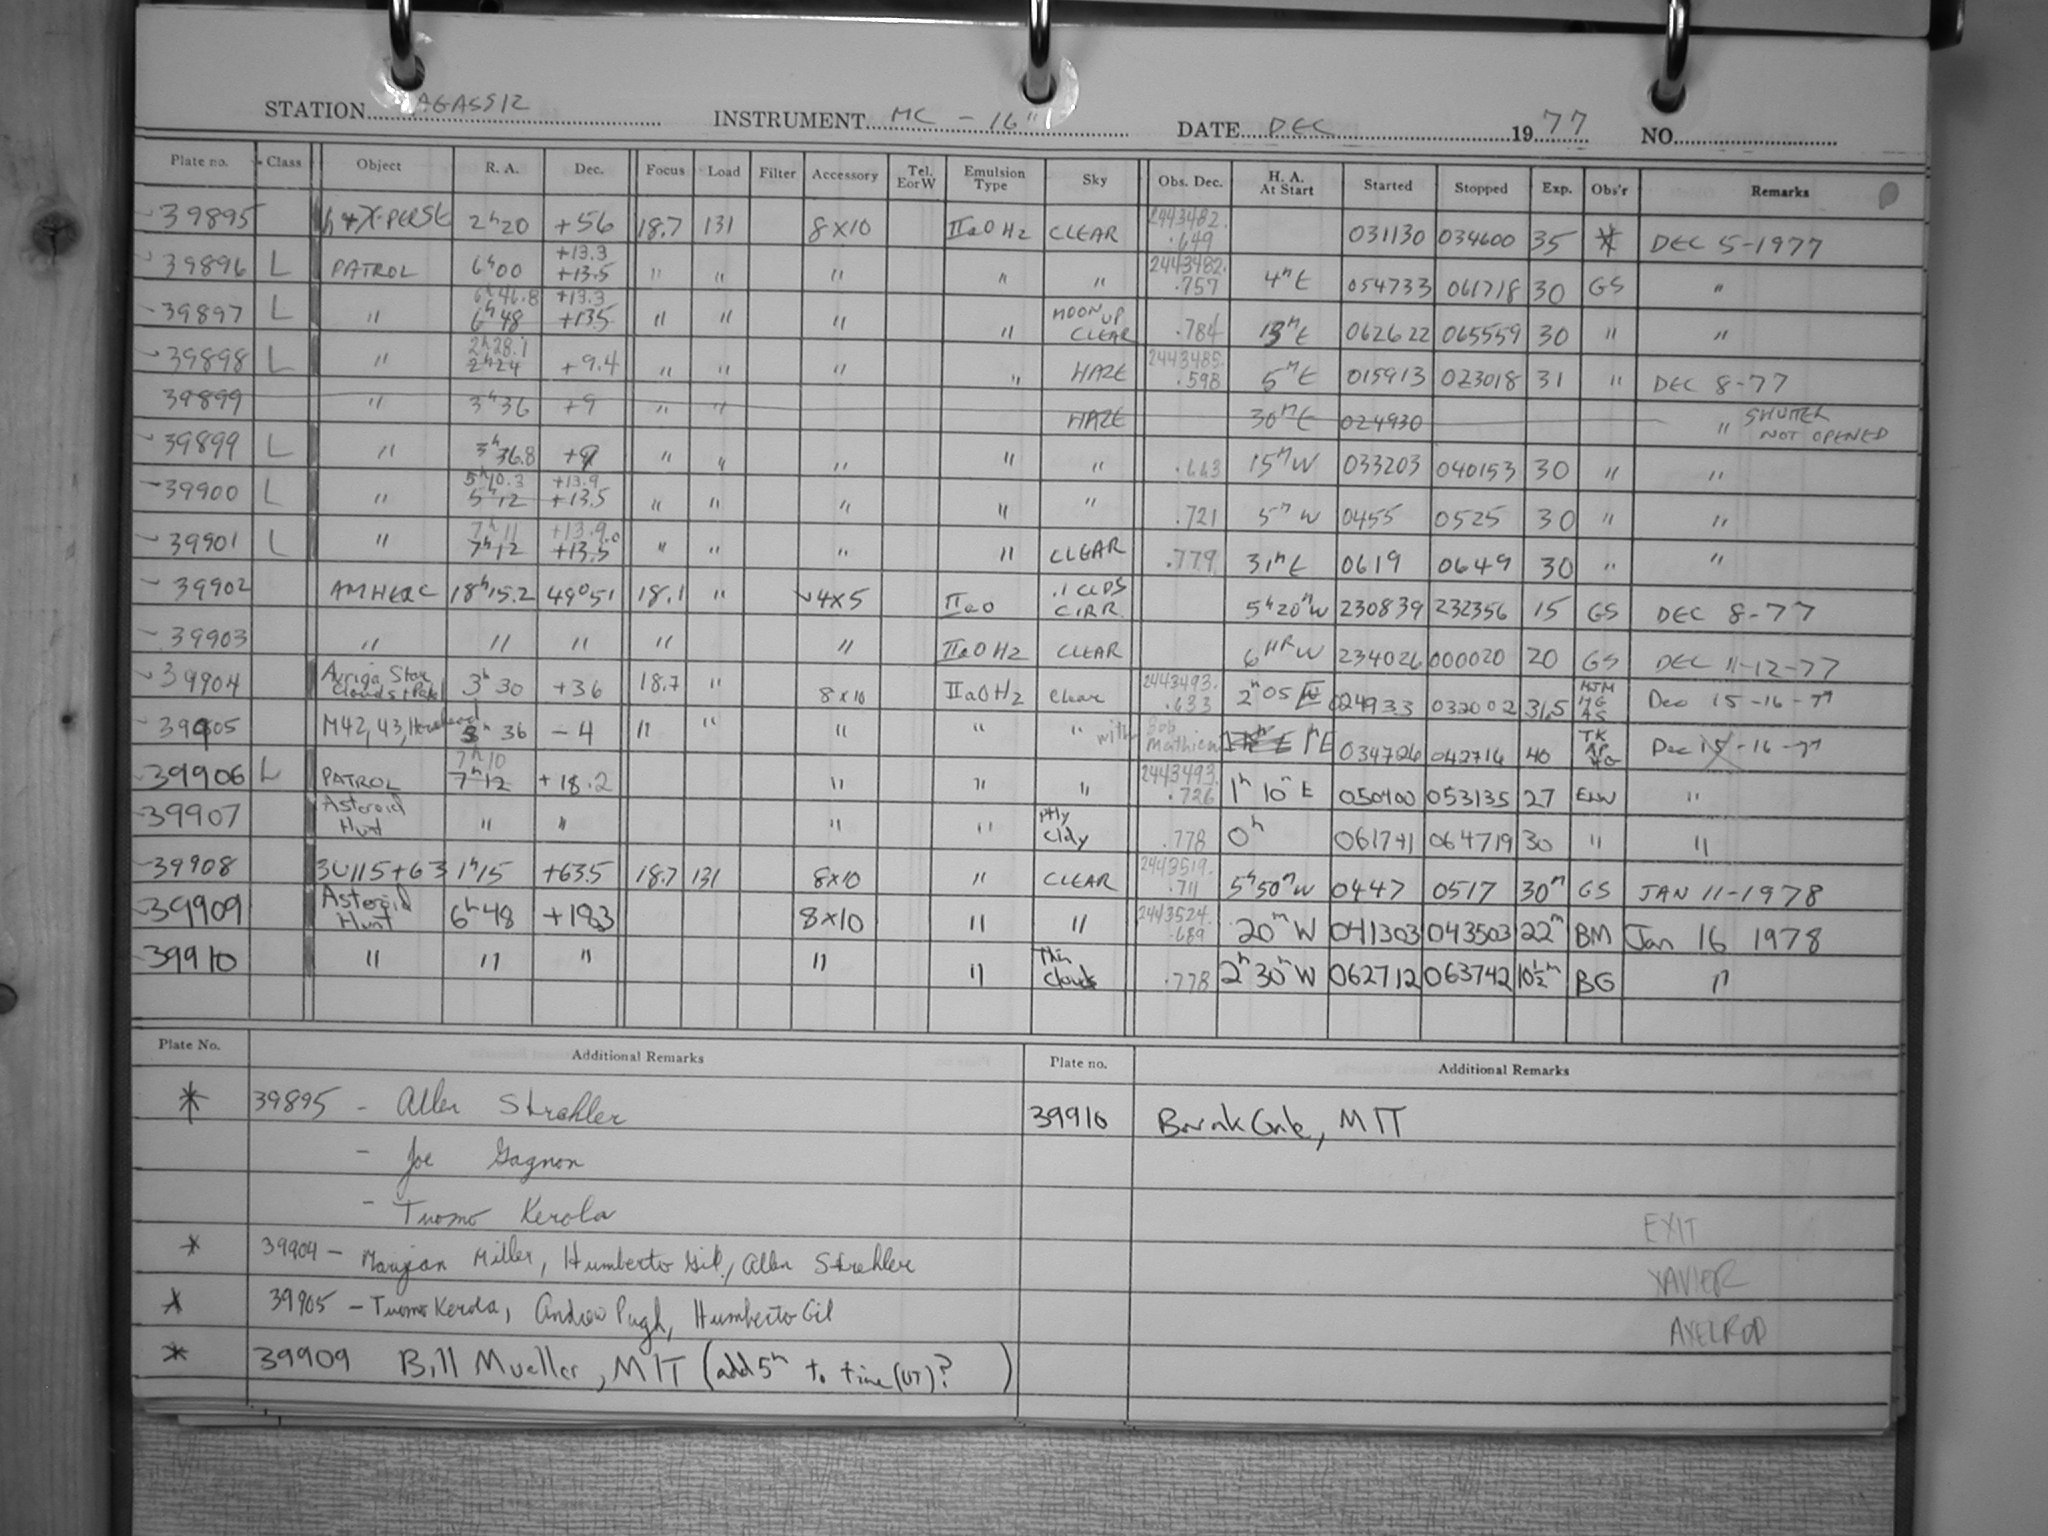 STATION AGASSIZ INSTRUMENT MC - 16" DATE DEC 1977 NO.
Plate no. Class Object R. A. Dec. Focus Load Filter Accessory Tel. E or W Emulsion Type Sky Obs. Dec. H. A. At Start Started Stopped Exp. Obs'r Remarks
39895 h + X-PERSEI 2h20 +56 18.7 131 8X10 IIaO H2 CLEAR 2443482.649 031130 034600 35 * DEC 5-1977
39896 L PATROL 6h00 +13.3 +13.5 " " " " " 2443482.757 4m E 054733 061718 30 GS "
39897 L " 6h46.8 6h48 +13.3 +13.5 " " " " MOON UP CLEAR .784 13m E 062622 065559 30 " "
39898 L " 2h28.1 2h24 +9.4 " " " " HAZE 2443485.598 5m E 015913 023018 31 " DEC 8-77
39899 " 3h36 +9 " " HAZE 30m E 024930 " SHUTTER NOT OPENED
39899 L " 3h36.8 +9 " " " " " .663 15m W 033203 040153 30 " "
39900 L " 5h10.3 5h12 +13.9 +13.5 " " " " " .721 5m W 0455 0525 30 " "
39901 L " 7h11 7h12 +13.9 +13.5 " " " " CLEAR .779 31m E 0619 0649 30 " "
39902 AM HERC 18h15.2 49°51 18.1 " 4X5 IIaO .1 CLDS CIRR. 5h20m W 230839 232356 15 GS DEC 8-77
39903 " " " " " IIaO H2 CLEAR 6HR W 234026 000020 20 GS DEC 11-12-77
39904 Auriga Star Clouds + 3h30 +36 18.7 " 8x10 IIaO H2 clear 2443493.633 2h05 024933 032002 31.5 MJM HG AS Dec 15-16-77
39905 M42, 43, Horsehead 3h36 -4 " " " " " with Bob Mathieu 1h E 034726 042716 40 TK AP HG Dec 15-16-77
39906 L PATROL 7h10 7h12 +18.2 " " " 2443493.726 1h 10m E 050400 053135 27 EHW "
39907 Asteroid Hunt " " " " ptly cldy .778 0h 061741 064719 30 " "
39908 3U115+63 1h15 +63.5 18.7 131 8x10 " CLEAR 2443519.711 5h50m W 0447 0517 30m GS JAN 11-1978
39909 Asteroid Hunt 6h48 +18.3 8x10 " " 2443524.689 20m W 041303 043503 22m BM Jan 16 1978
39910 " " " " " thin clouds .778 2h 30m W 062712 063742 10½m BG "
Plate No. Additional Remarks Plate no. Additional Remarks
* 39895 - Allen Strahler 39910 MIT
- Joe Gagnon
- Tuomo Kerola
EXIT
* 39904 - Marijean Miller, Humberto Gil, Allen Strahler
XAVIER
* 39905 - Tuomo Kerola, Andrew Pugh, Humberto Gil
AXELROD
* 39909 Bill Mueller, MIT (add 5h to time (UT)? )